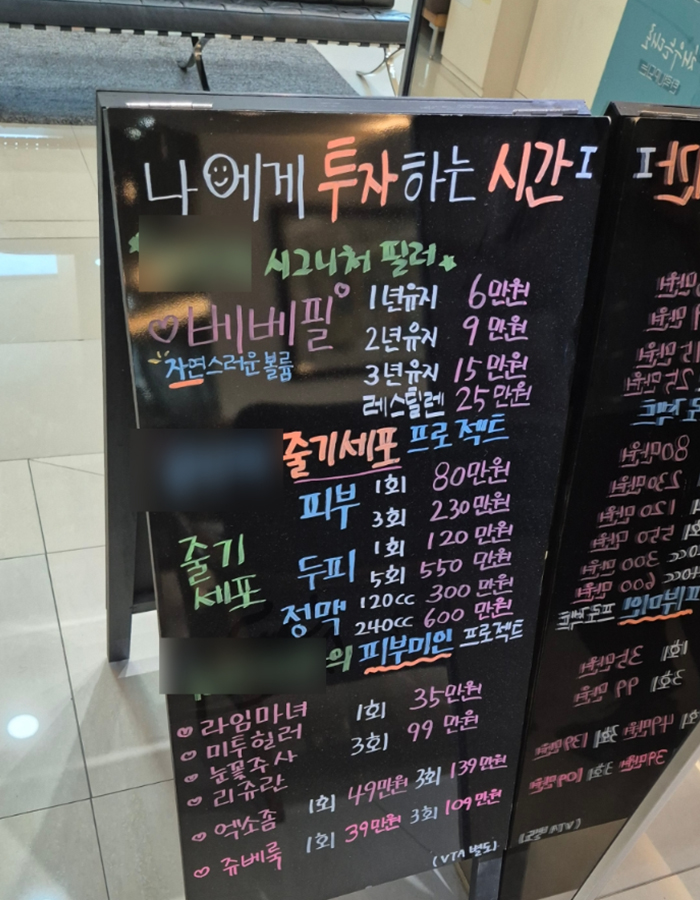 나에게 투자하는 시간
시그니처 필러
베베필 1년유지 6만원
자연스러운 볼륨 2년유지 9만원
3년유지 15만원
레스틸렌 25만원
줄기세포 프로젝트
줄기세포
피부 1회 80만원
3회 230만원
두피 1회 120만원
5회 550만원
정맥 120cc 300만원
240cc 600만원
의 피부미인 프로젝트
라임마녀 1회 35만원
미투힐러 3회 99만원
눈꽃주사
리쥬란
엑소좀 1회 49만원 3회 139만원
쥬베룩 1회 39만원 3회 109만원
(VTA 별도)